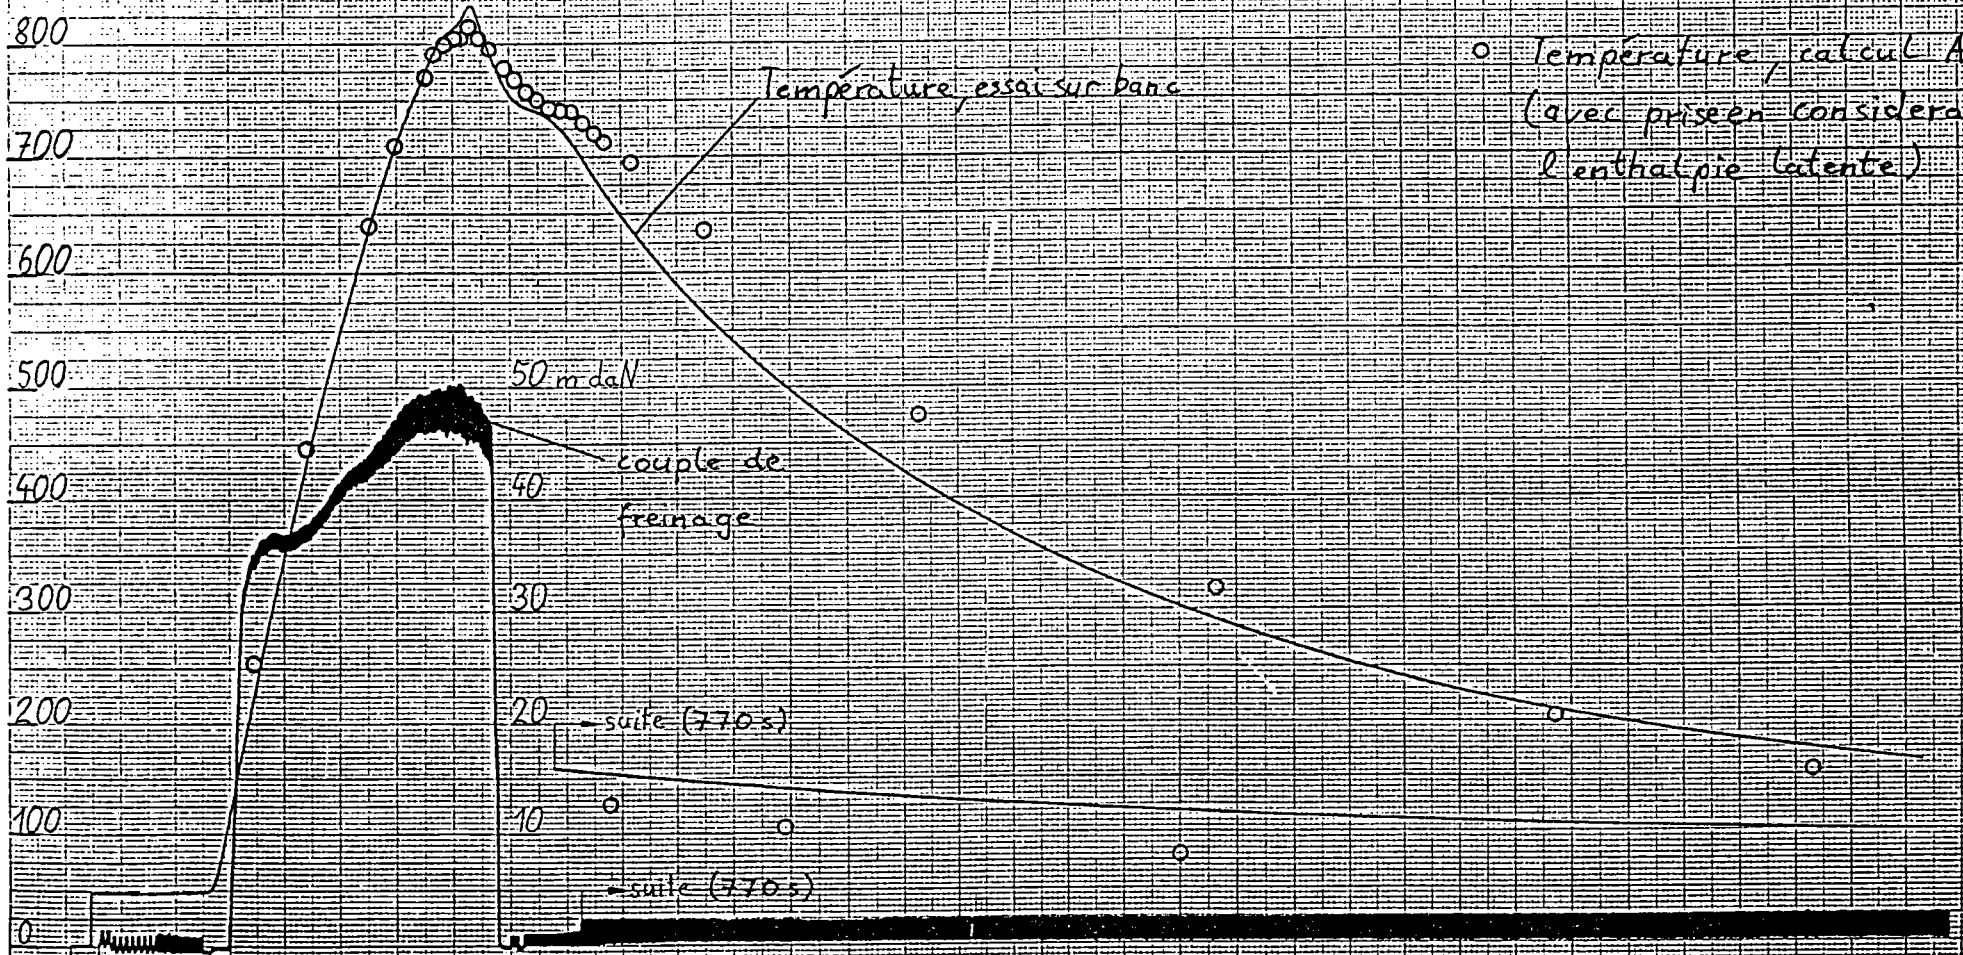 800
700
600
500
400
300
200
100
0
Température, essai sur banc
o Température, calcul A
(avec prise en considera
l'enthalpie latente)
50 m daN
40
30
20
10
couple de
freinage
suite (770 s)
suite (770 s)